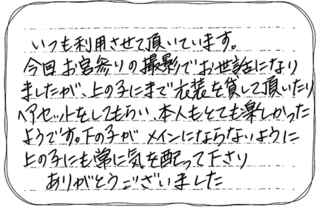 いつも利用させて頂いています。
今回お宮参りの撮影でお世話になり
ましたが、上の子にまで衣装を貸して頂いたり
ヘアセットをしてもらい、本人もとても楽しかった
ようです。下の子がメインにならないように
上の子にも常に気を配って下さり
ありがとうございました